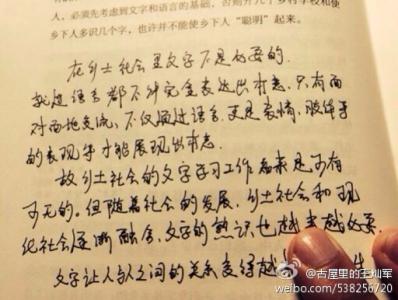 人，必须先考虑到文字和语言的基础，否则开几个乡村学校和使
乡下人多识几个字，也许并不能使乡下人“聪明”起来。
在乡土社会里文字不是必要的.
就连语言都不能完全表达出本意.只有面
对面地交流，不仅通过语言.更是表情，肢体等
的表现等才能展现出本意.
故乡土社会的文字学习工作看来是可有
可无的。但随着社会的发展，乡土社会和现
化社会逐渐融合，文字的熟识也越来越必要.
文字让人与人之间的关系变得越
@古屋里的王灿军
weibo.com/538256720